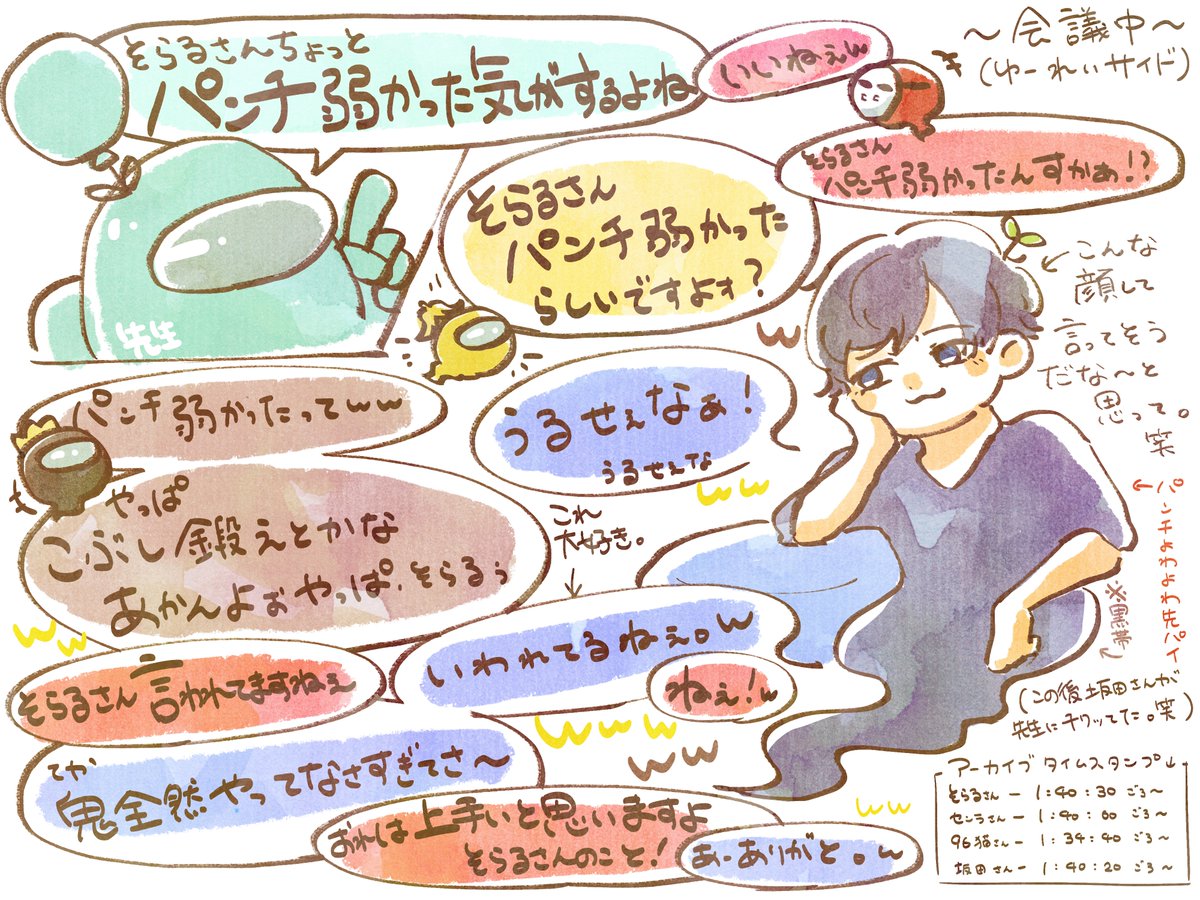 ～会議中～
(ゆーれいサイド)
そらるさんちょっと
パンチ弱かった気がするよね
いいねぇw
先生
そらるさん
パンチ弱かったんすかぁ!?
そらるさん
パンチ弱かった
らしいですよォ?
w
←こんな
顔して
言ってそう
だな～と
思って。
笑
パンチ弱かったってww
うるせぇなぁ!
うるせぇな
ww
やっぱ
こぶし鍛えとかな
あかんよぉやっぱ、そらるぅ
ww
これ
大好き。
↓
←パンチよわよわ先パイ
※黒帯
そらるさん言われてますねぇ
いわれてるねぇ。w
ねぇ!w
www
ww
(この後坂田さんが
先生にチクッてた。笑)
てか
鬼全然やってなさすぎてさ～
おれは上手いと思いますよ
そらるさんのこと!
あーありがと。w
ww
アーカイブタイムスタンプ↓
そらるさんー 1:40:30 ごろ～
センラさんー 1:40:00 ごろ～
96猫さんー 1:34:40 ごろ～
坂田さんー 1:40:20 ごろ～